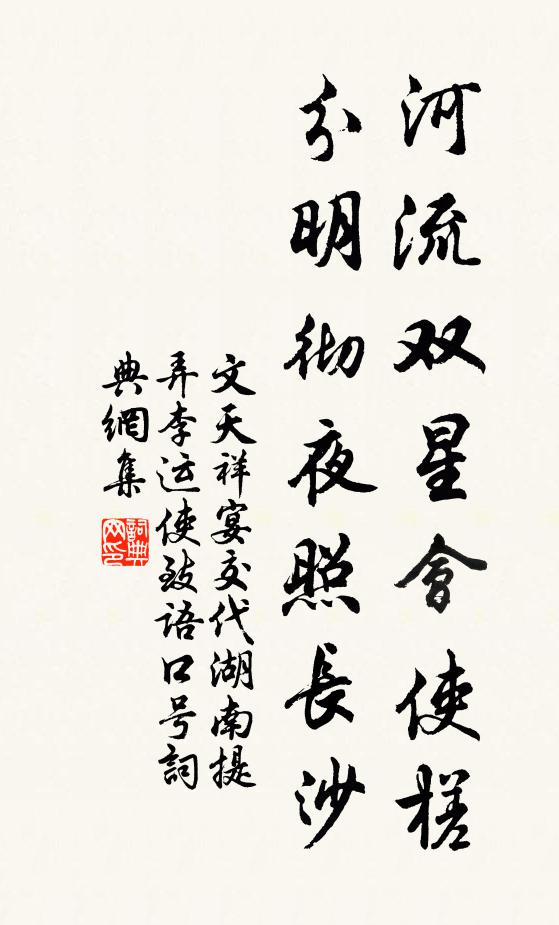 河流双星会使槎
分明彻夜照長沙
文天祥宴交代湖南提
弄李运使致语口号詞
典網集
詞典网印